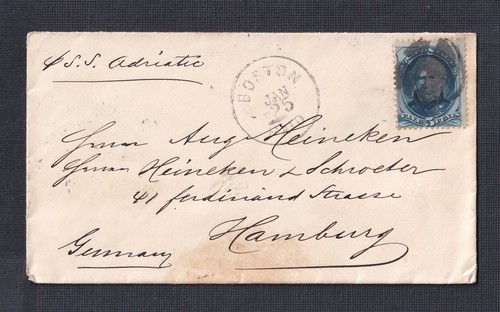 p S.S. Adriatic
BOSTON.
JAN
25
Herrn Aug Heineken
Herren Heineken & Schroeter
41 ferdinand Strasse
Hamburg
Germany